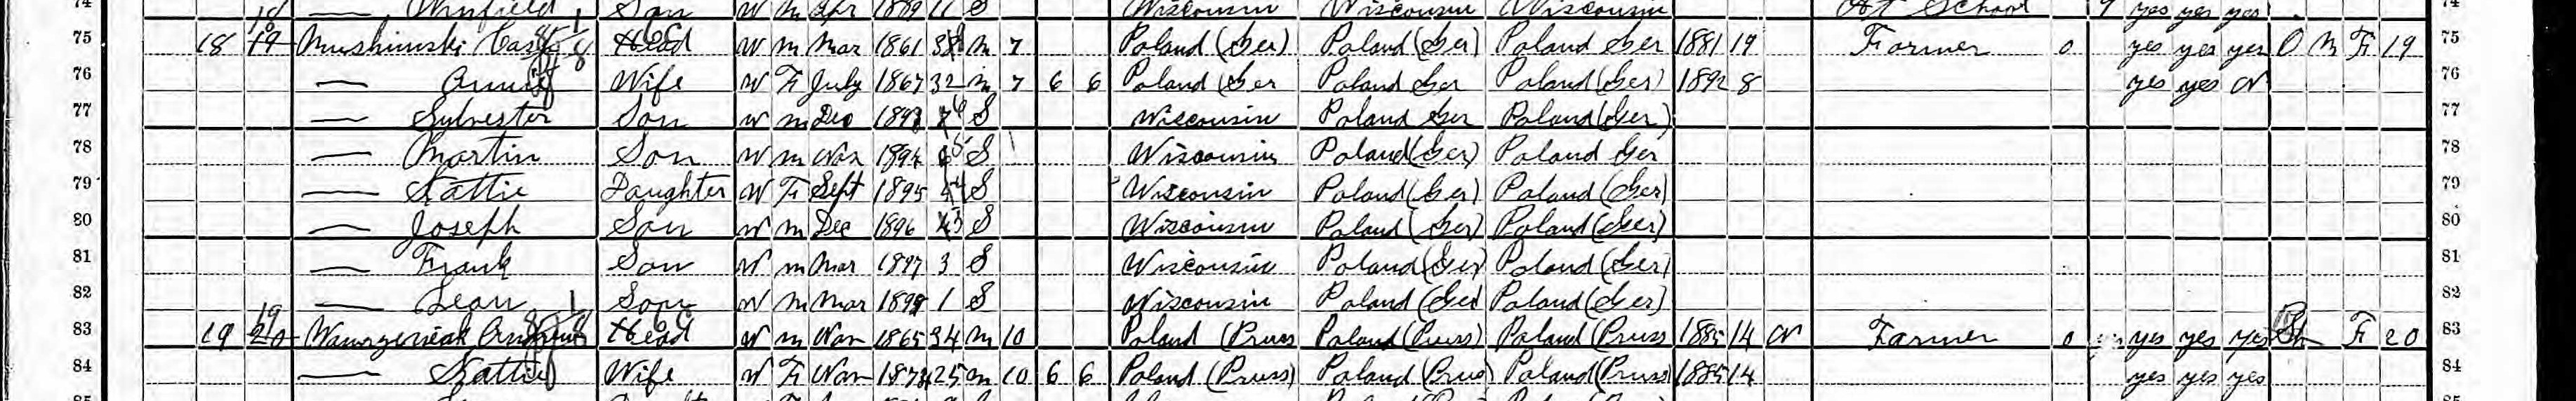 74 Winfield Son W M Apr 1889 11 S Wisconsin Wisconsin Wisconsin At School 9 yes yes yes 74
75 18 19 18 Mushinski Head W M Mar 1861 M 7 Poland (Ger) Poland (Ger) Poland Ger 1881 19 Farmer 0 yes yes yes O M F 19 75
76 — Wife W F July 1867 32 M 7 6 6 Poland (Ger Poland Ger Poland (Ger) 1892 8 yes yes 76
77 — Sylvester Son W M Dec 6 S Wisconsin Poland Ger Poland (Ger) 77
78 — Martin Son W M Nov 1894 5 S Wisconsin Poland (Ger) Poland Ger 78
79 — Kattie Daughter W F Sept 1895 4 S Wisconsin Poland (Ger) Poland (Ger) 79
80 — Joseph Son W M Dec 1896 3 S Wisconsin Poland (Ger) Poland (Ger) 80
81 — Frank Son W M Mar 1897 3 S Wisconsin Poland (Ger) Poland (Ger) 81
82 — Leon Son W M Mar 1 S Wisconsin Poland (Ger Poland (Ger) 82
83 19 20 19 Head W M Nov 1865 34 M 10 Poland (Pruss Poland (Pruss) Poland (Pruss 1885 14 Farmer 0 yes yes yes F 20 83
84 — Kattie Wife W F Nov 25 M 10 6 6 Poland (Pruss) Poland (Prus) Poland (Pruss) 1885 14 yes yes yes 84
85 85